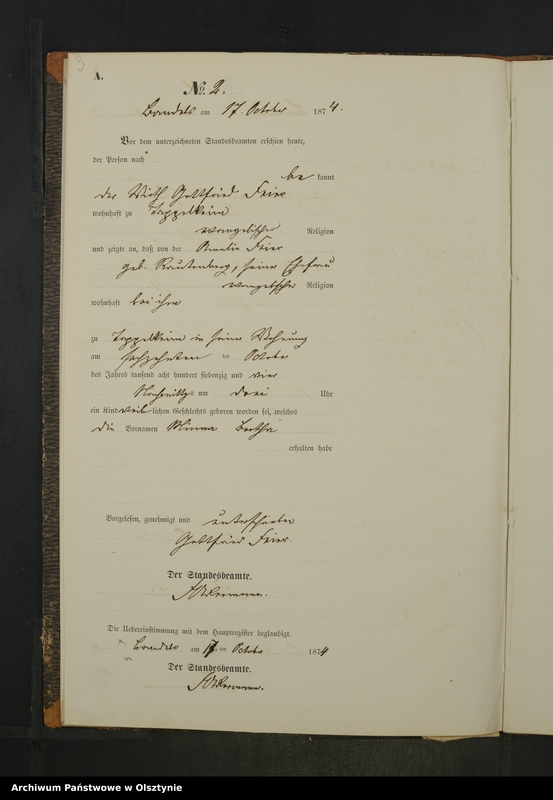 3
A.
No. 2.
Bandels am 17. October 1874.
Vor dem unterzeichneten Standesbeamten erschien heute,
der Person nach
be kannt
der Wirth Gottfried Feier
wohnhaft zu Toppelkeim
evangelischer Religion
und zeigte an, daß von der Amalie Feier
geb. Rautenberg, seiner Ehefrau
evangelischer Religion
wohnhaft bei ihm
zu Toppelkeim in seiner Wohnung
am sechzehnten ten October
des Jahres tausend acht hundert siebenzig und vier
Nachmittags um drei Uhr
ein Kind weib lichen Geschlechts geboren worden sei, welches
die Vornamen Minna Bertha
erhalten habe
Vorgelesen, genehmigt und unterschrieben
Gottfried Feier.
Der Standesbeamte.
Die Uebereinstimmung mit dem Hauptregister beglaubigt.
Bandels am 17. ten October 1874
Der Standesbeamte.
Archiwum Państwowe w Olsztynie